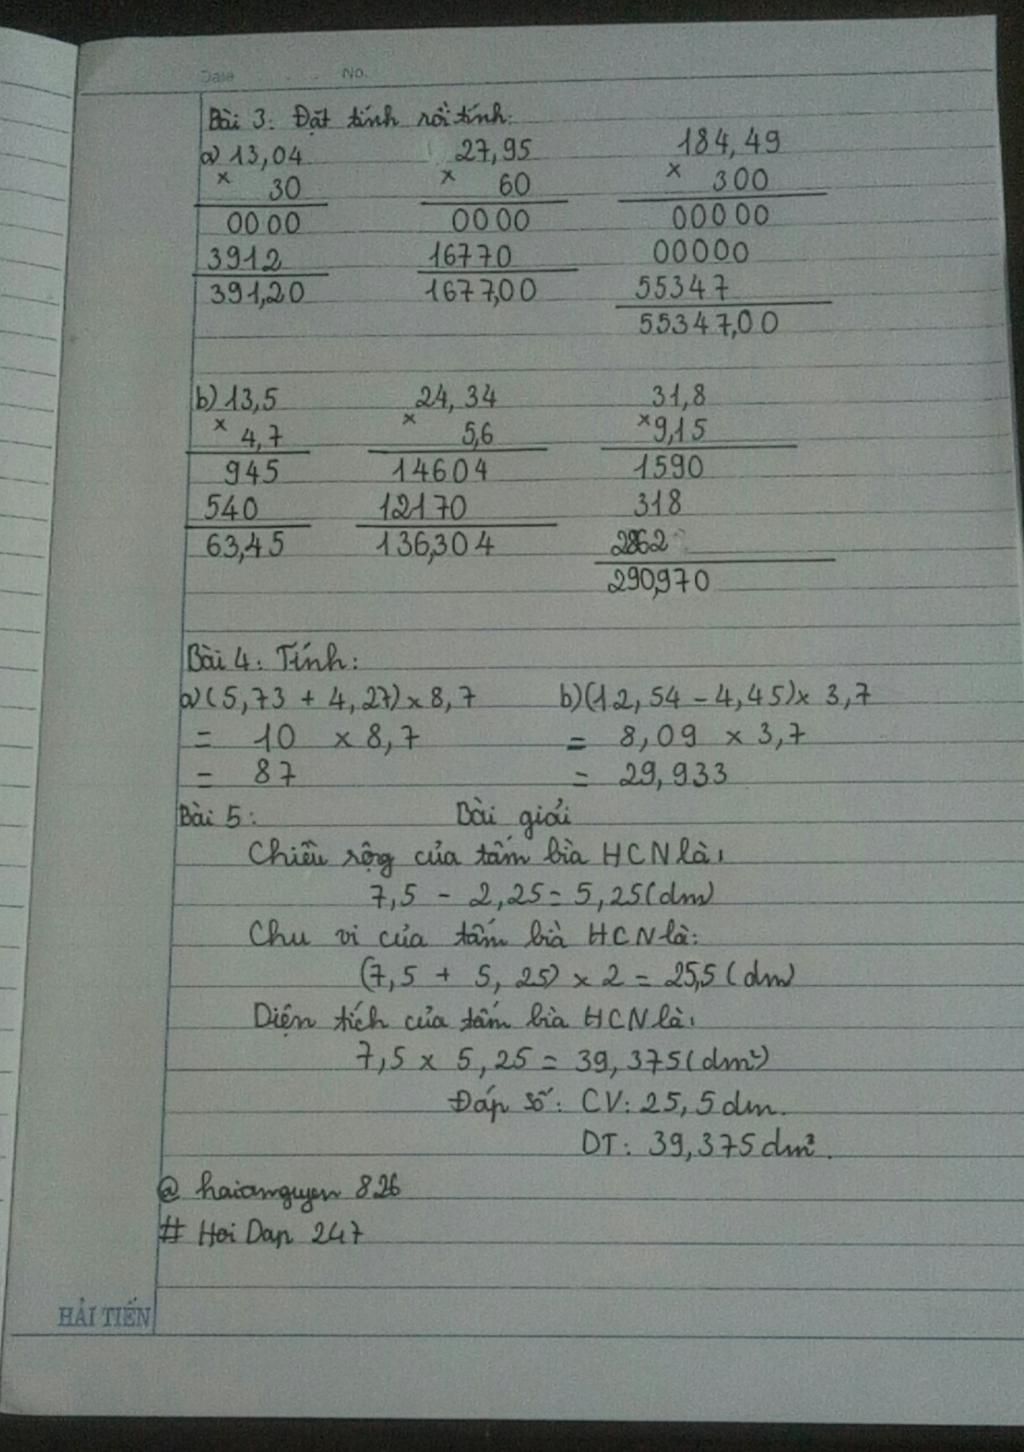 Date . . . No.
Bài 3: Đặt tính rồi tính:
a) 13,04 27,95 184,49
x 30 x 60 x 300
0000 0000 00000
3912 16770 00000
391,20 1677,00 55347
55347,00
b) 13,5 24,34 31,8
x 4,7 x 5,6 x 9,15
945 14604 1590
540 12170 318
63,45 136,304 2862
290,970
Bài 4: Tính:
a) (5,73 + 4,27) x 8,7 b) (12,54 - 4,45) x 3,7
= 10 x 8,7 = 8,09 x 3,7
= 87 = 29,933
Bài 5: Bài giải
Chiều rộng của tấm bìa HCN là:
7,5 - 2,25 = 5,25 (dm)
Chu vi của tấm bìa HCN là:
(7,5 + 5,25) x 2 = 25,5 (dm)
Diện tích của tấm bìa HCN là:
7,5 x 5,25 = 39,375 (dm²)
Đáp số: CV: 25,5 dm.
DT: 39,375 dm².
@ haianguyen 826
# Hoi Dap 247
HẢI TIẾN